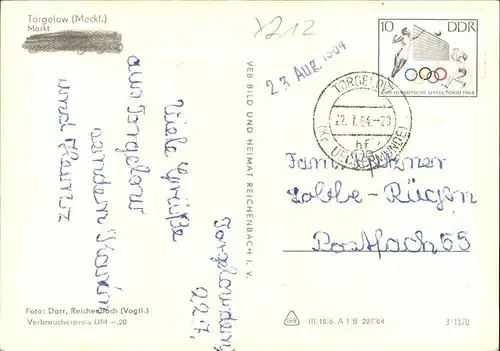 Torgelow (Meckl.)
Markt
Torgelow, den
22.7.
Viele Grüße
aus Torgelow
senden Karin
und Hannz
VEB BILD UND HEIMAT REICHENBACH I. V.
Y212
23. Aug. 1964
10 DDR
XVIII. OLYMPISCHE SPIELE TOKIO 1964
TORGELOW
22. 7. 64.-20
hf
(KR UECKERMÜNDE)
Fam.
Lobbe-Rügen
Postfach 55
Foto: Darr, Reichenbach (Vogtl.)
Verbraucherpreis DM -,20
III/18/6 A 1/B 227/64
3/1170